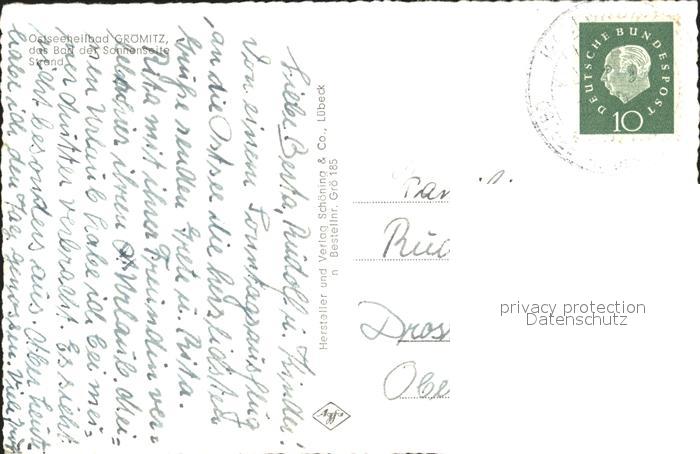 Ostseeheilbad GRÖMITZ,
das Bad der Sonnenseite
Strand
Liebe Berta, Rudolf u. Kinder!
Von einem Sonntagsausflug
an die Ostsee die herzlichsten
Grüße senden Grete u. Rita.
Rita mit ihrer Freundin ver-
ihren Urlaub. Mei-
nen Urlaub habe ich bei mei-
ner verbracht. Es sieht
nicht besonders aus. Aber heute
habe ich den Tag genossen.
Hersteller und Verlag Schöning & Co., Lübeck
n Bestellnr. Grö 185
Rud
Dros
Obe
DEUTSCHE BUNDESPOST
10
privacy protection
Datenschutz